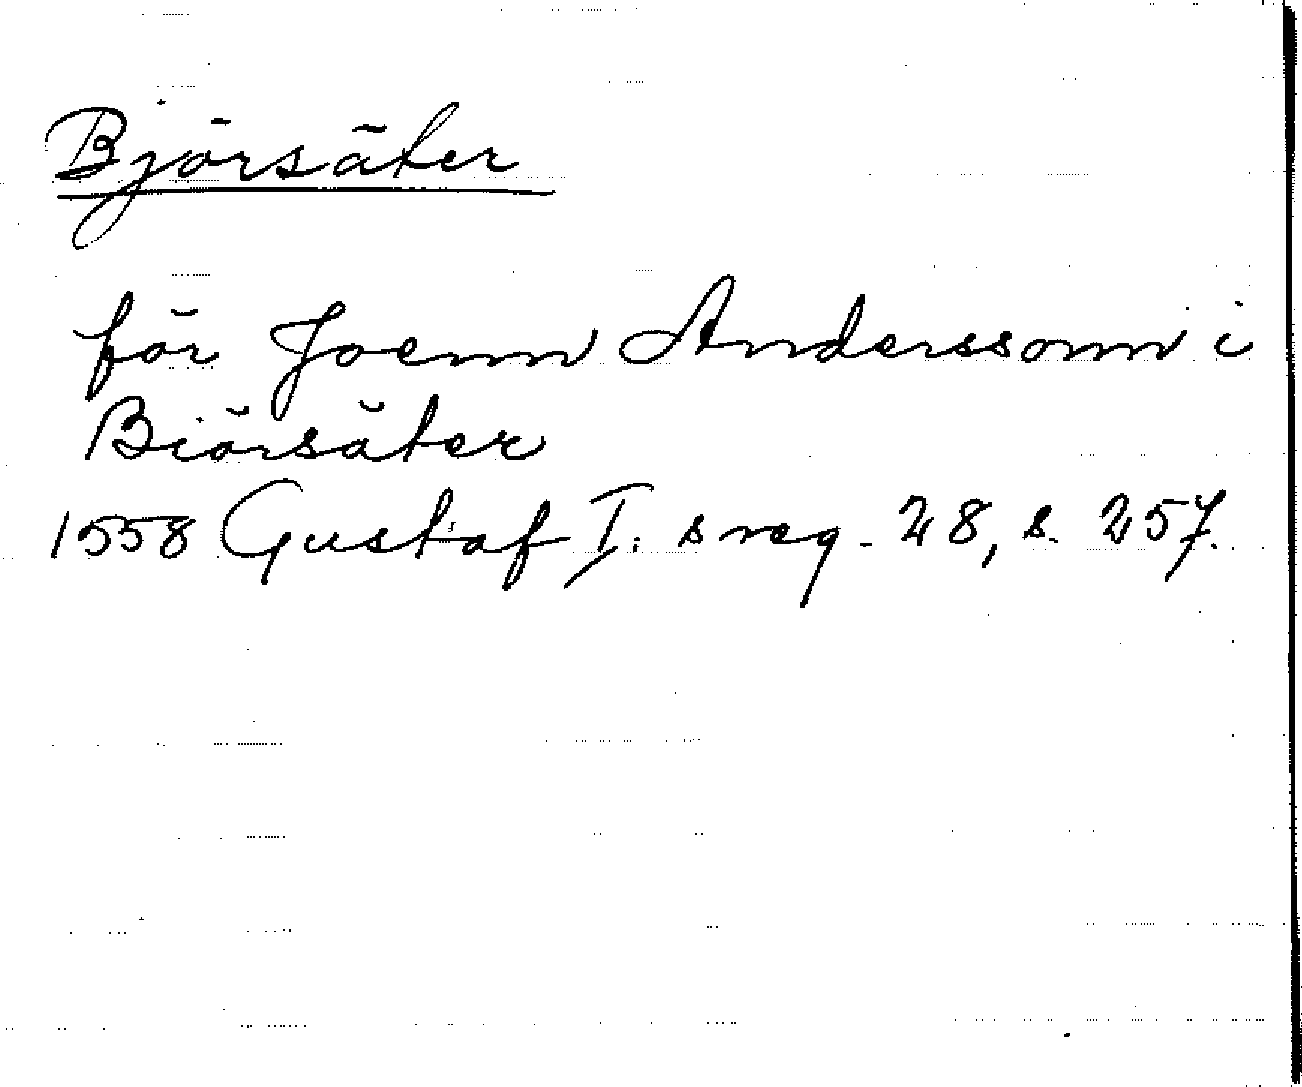 Björsäter
för Joenn Anderssonn i
Biörsäter
1558 Gustaf I:s reg. 28, s. 257.